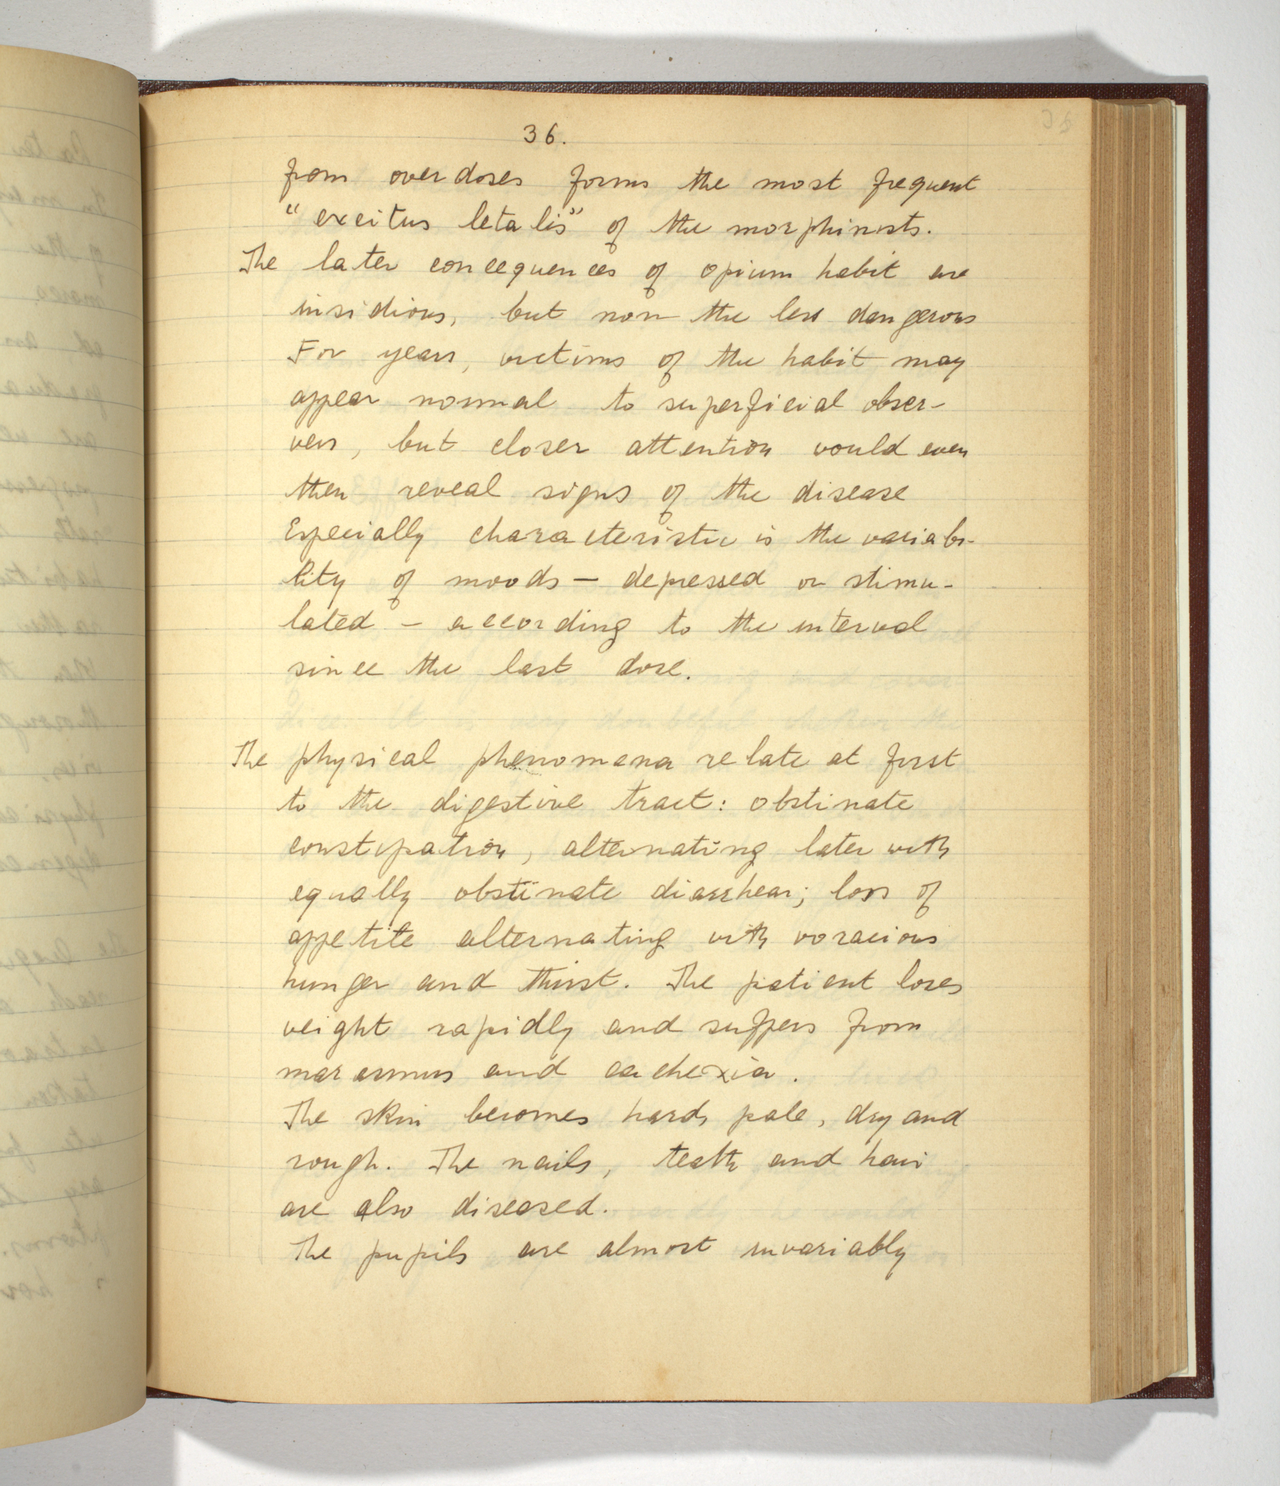 36.
from overdoses forms the most frequent
"exeitus letalis" of the morphinists.
The later conсequences of opium habit are
insidious, but non the less dangerous
For years, victims of the habit may
appear normal to superficial obser-
vers, but closer attention would even
then reveal signs of the disease
Especially characteristic is the variabi-
lity of moods — depressed or stimu-
lated — according to the interval
since the last dose.
The physical phenomena relate at first
to the digestive tract: obstinate
constipation, alternating later with
equally obstinate diarrhea; loss of
appetite alternating with voracious
hunger and thirst. The patient loses
weight rapidly and suffers from
marasmus and cachexia.
The skin becomes hard, pale, dry and
rough. The nails, teeth and hair
are also diseased.
The pupils are almost invariably